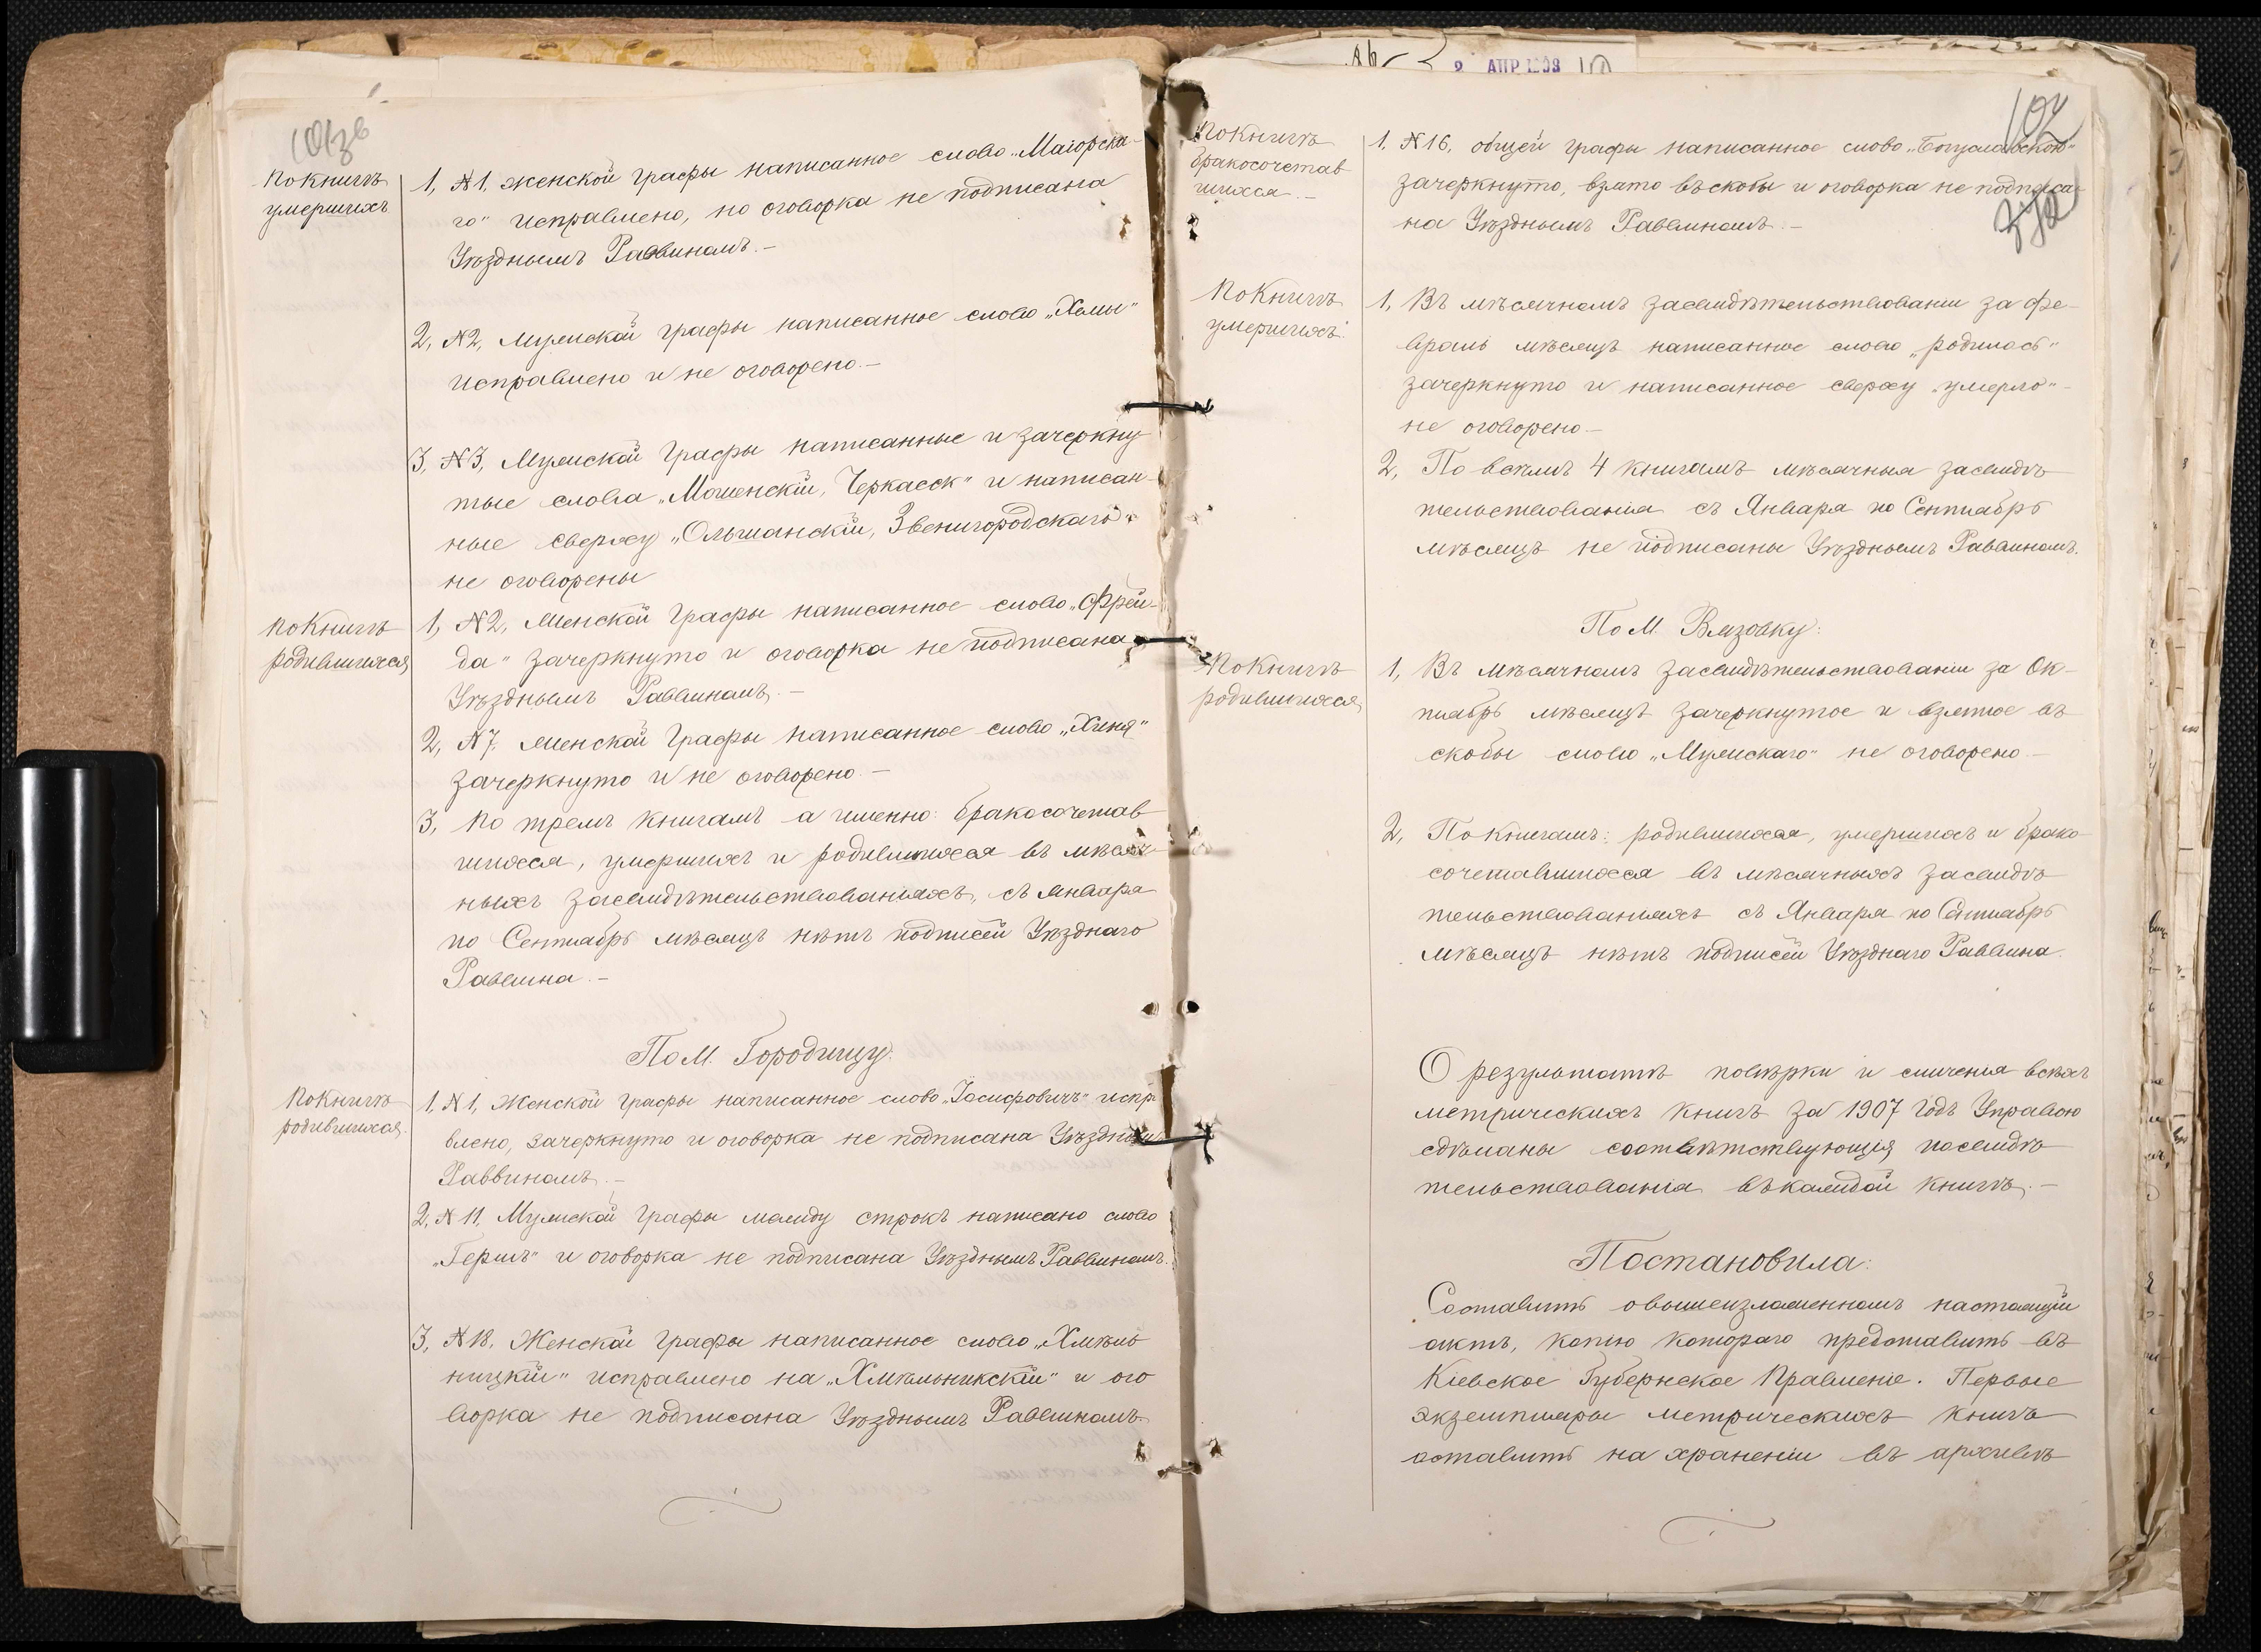 По книгѣ
умершихъ
1, №1, женской графы написанное слово „Маіорска-
го" исправлено, но оговорка не подписана
Уѣзднымъ Раввиномъ.—
2, №2, Мужской графы написанное слово „Хомы"
исправлено и не оговорено.—
3, №3, Мужской графы написанные и зачеркну
тые слова „Мошенскій, Черкасск" и написан-
ные сверху „Ольшанскій, Звенигородскаго"
не оговорены
По книгѣ
родившихся
1, №2, Женской графы написанное слово „Фрей-
да" зачеркнуто и оговорка не подписана
Уѣзднымъ Раввиномъ.—
2, №7. женской графы написанное слово „Хиня"
зачеркнуто и не оговорено.—
3, По тремъ книгамъ а именно: бракосочетав
шихся, умершихъ и родившихся въ мѣсяч-
ныхъ засвидѣтельствованіяхъ, съ Января
по Сентябрь мѣсяцъ нѣтъ подписей Уѣзднаго
Раввина.—
По М. Городищу:
По книгѣ
родившихся.
1, №1, Женской графы написанное слово „Іосифовичъ" испр
влено, зачеркнуто и оговорка не подписана Уѣзднымъ
Раввиномъ.—
2, №11, Мужской графы между строкъ написано слово
„Гершъ" и оговорка не подписана Уѣзднымъ Раввиномъ.
3, №18, Женской графы написанное слово „Хмѣль
ницкій" исправлено на „Хмѣльникскій" и ого
ворка не подписана Уѣзднымъ Раввиномъ
2 АПР
102
По книгѣ
бракосочетав
шихся.—
1, №16, общей графы написанное слово „Богуславской"
зачеркнуто, взято въ скобы и оговорка не подписа-
на Уѣзднымъ Раввиномъ.—
По книгѣ
умершихъ.
1, Въ мѣсячномъ засвидѣтельствованіи за фе-
враль мѣсяцъ написанное слово „родилось"
зачеркнуто и написанное сверху „умерло"-
не оговорено—
2, По всѣмъ 4 книгамъ мѣсячныя засвидѣ
тельствованія съ Января по Сентябрь
мѣсяцъ не подписаны Уѣзднымъ Раввиномъ.
По М. Вязовку:
По книгѣ
родившихся
1, Въ мѣсячномъ засвидѣтельствованіи за Ок-
тябрь мѣсяцъ зачеркнутое и взятое въ
скобы слово „Мужскаго" не оговорено—
2, По книгамъ: родившихся, умершихъ и брако
сочетавшихся въ мѣсячныхъ засвидѣ
тельствованіяхъ съ Января по Сентябрь
мѣсяцъ нѣтъ подписей Уѣзднаго Раввина.
О результатѣ повѣрки и сличенія всѣхъ
метрическихъ книгъ за 1907 годъ Управою
сдѣланы соотвѣтствующія посвидѣ
тельствованія въ каждой книгѣ.—
Постановила:
Составить о вышеизложенномъ настоящій
актъ, копію котораго представить въ
Кіевское Губернское Правленіе. Первые
экземпляры метрическихъ книгъ
оставить на храненіи въ архивѣ